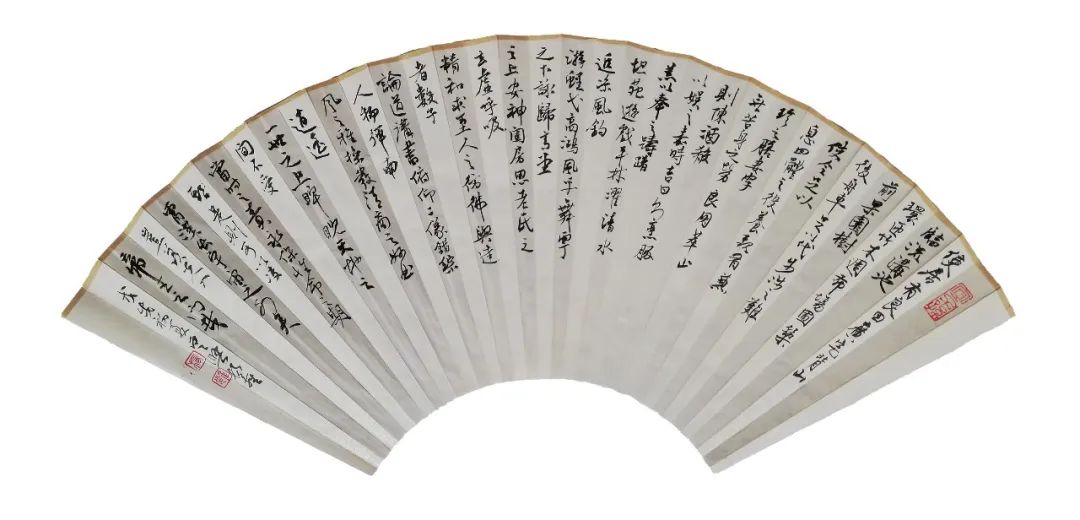 使居有良田廣宅背山
臨流溝池
環匝竹木周布場圃築
前果園樹
後舟車足以代步涉之難
使令足以
息四體之役養親有兼
珍之膳妻孥
無苦身之勞良朋萃止
則陳酒殽
以娛之嘉時吉日烹豚
羔以奉之躊躇
苑遊戲平林濯清水
追涼風釣
游鯉弋高鴻風乎舞雩
之下詠歸高堂
之上安神閨房思老氏之
玄虛呼吸
精和求至人之彷彿與達
者數子
論道講書俯仰二儀錯綜
人物彈南
風之雅操發清商之妙曲
逍遙
一世之上睥睨天地之
間不受
當時之責永保性命之期
如是則可以凌
霄漢出宇宙之外矣
豈羨夫入
帝王之門哉
戊戌初夏